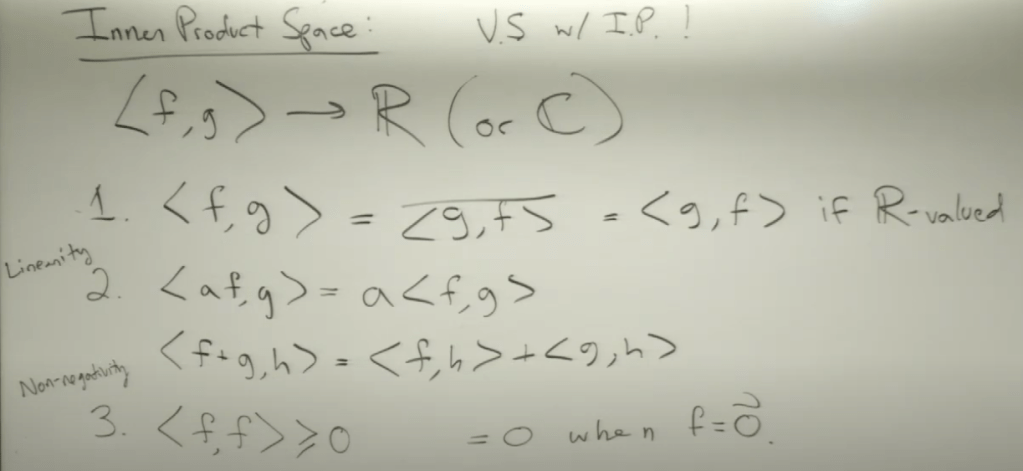 Inner Product Space: V.S w/ I.P. !
<f,g> → ℝ (or ℂ)
1. <f,g> = \overline{<g,f>} = <g,f> if ℝ-valued
Linearity
2. <af,g> = a<f,g>
<f+g,h> = <f,h> + <g,h>
Non-negativity
3. <f,f> ≥ 0 = 0 when f = \vec{0}.